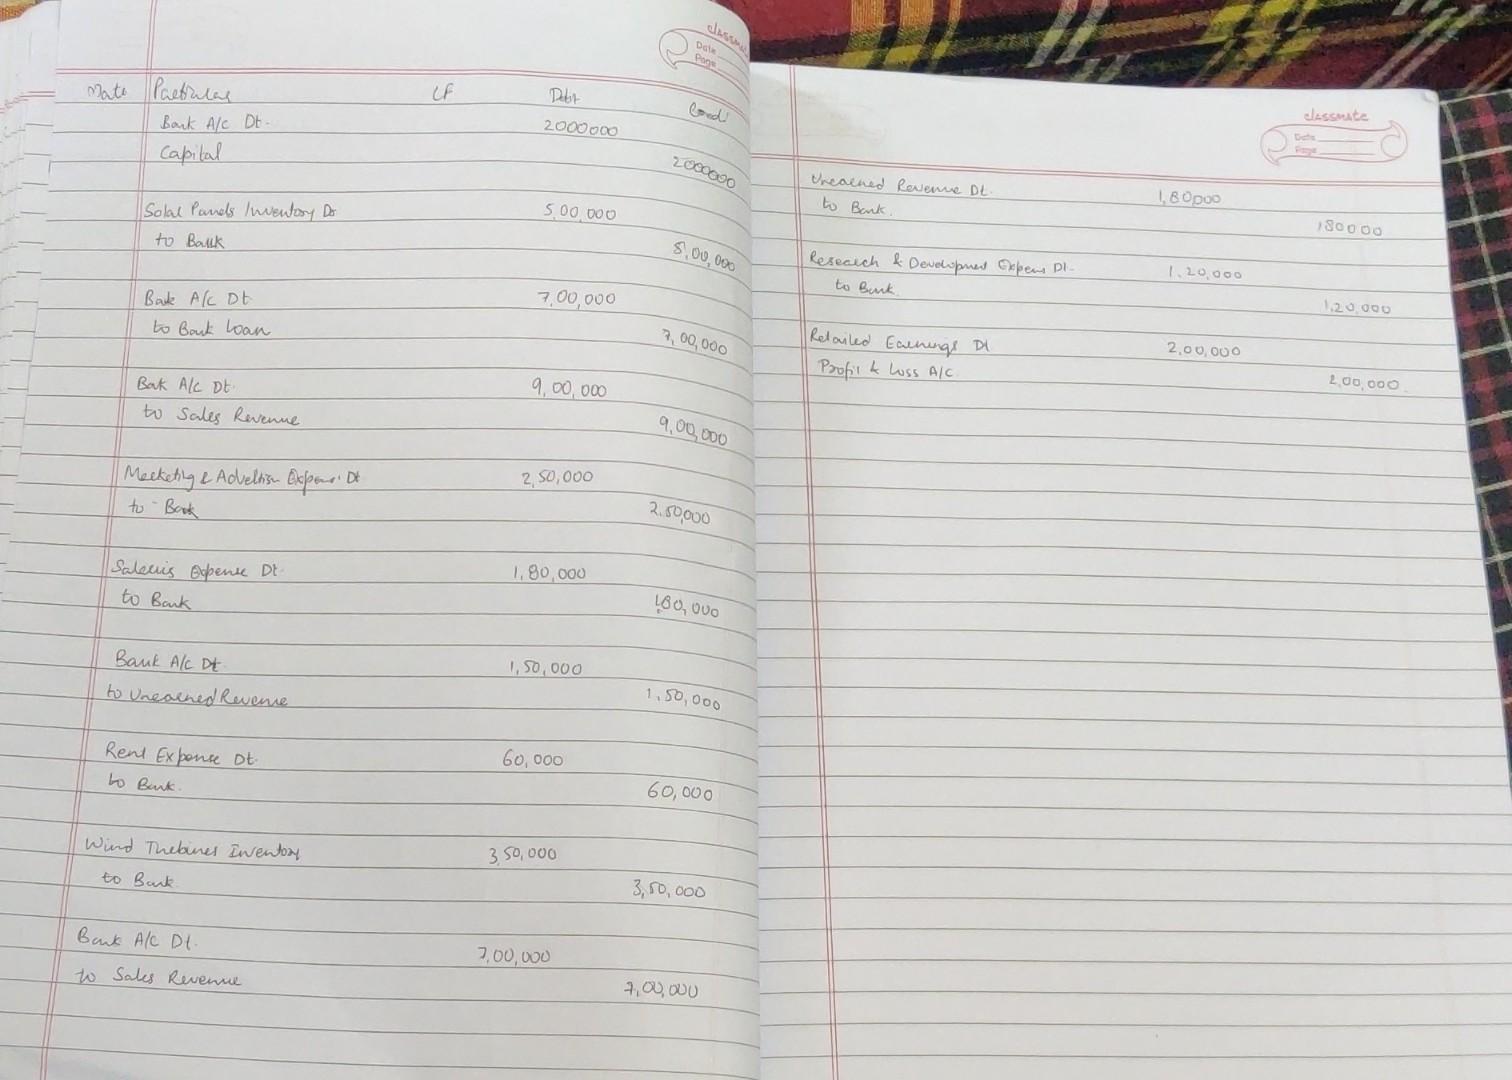 classmate
Date
Page
Date Particulars LF Debit Credit
Bank A/c Dt. 2000000
Capital 2000000
Solar Panels Inventory Dr 5,00,000
to Bank 5,00,000
Bank A/c Dt 7,00,000
to Bank Loan 7,00,000
Bank A/c Dt. 9,00,000
to Sales Revenue 9,00,000
Marketing & Advertism Expense Dt 2,50,000
to Bank 2.50,000
Salaries Expense Dt. 1,80,000
to Bank 1,80,000
Bank A/c Dt. 1,50,000
to Unearned Revenue 1,50,000
Rent Expense Dt. 60,000
to Bank. 60,000
Wind Turbines Inventory 3,50,000
to Bank 3,50,000
Bank A/c Dt. 7,00,000
to Sales Revenue 7,00,000
classmate
Date
Page
Unearned Revenue Dt. 1,80,000
to Bank. 180000
Research & Development Expens Dt. 1,20,000
to Bank. 1,20,000
Retained Earnings Dt 2,00,000
Profit & Loss A/c 2,00,000